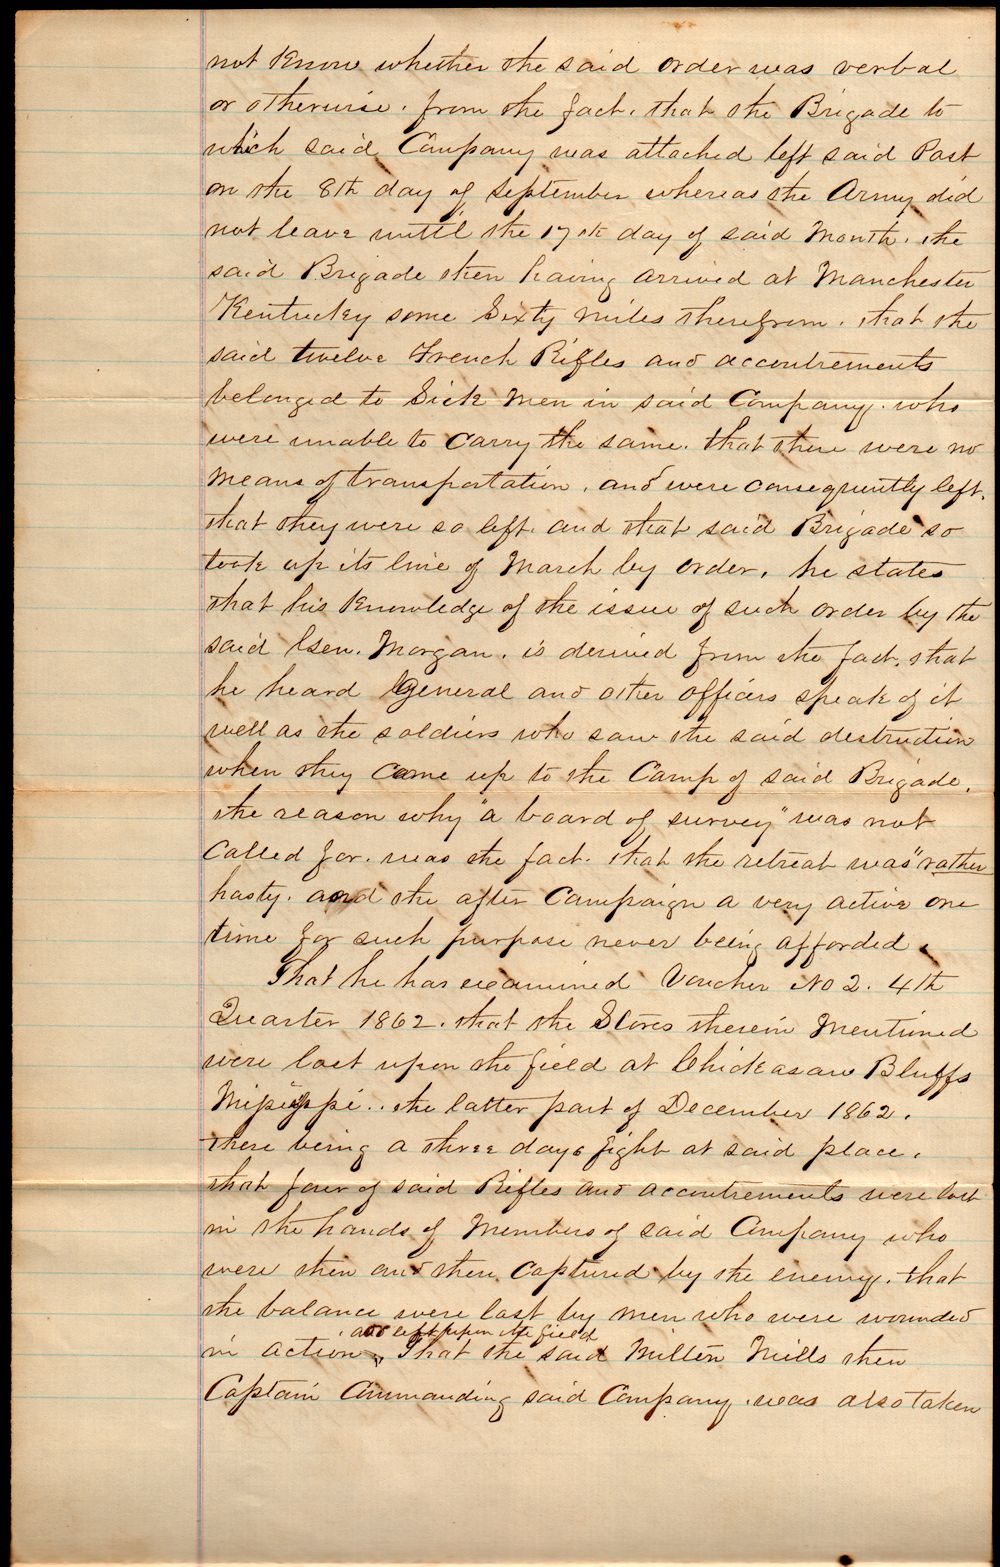 not Know whether the said order was verbal
or otherwise. from the fact. that the Brigade to
which said Company was attached left said Post
on the 8th day of September whereas the Army did
not leave until the 17th day of said Month. the
said Brigade then having arrived at Manchester
Kentucky some Sixty miles therefrom. that the
said twelve French Rifles and accoutrements
belonged to Sick Men in said Company. who
were unable to carry the same. that there were no
Means of transportation, and were consequently left.
that they were so left. and that said Brigade so
took up its line of March by order, he states
that his Knowledge of the issue of such order by the
said Gen. Morgan. is derived from the fact. that
he heard General and other officers speak of it
well as the soldiers who saw the said destruction
when they came up to the Camp of said Brigade.
the reason why "a board of survey" was not
Called for. was the fact. that the retreat was "rather
hasty. and the after Campaign a very active one
time for such purpose never being afforded.
That he has examined Voucher No 2. 4th
Quarter 1862. that the Stores therein Mentioned
were lost upon the field at Chickasaw Bluffs
Mipissippi.. the latter part of December 1862.
there being a three days fight at said place.
that four of said Rifles and accoutrements were lost
in the hands of Members of said Company who
were then and there captured by the enemy. that
the balance were lost by men who were wounded
, and left upon the field
in action, That the said Milton Mills then
Captain Commanding said Company. was also taken